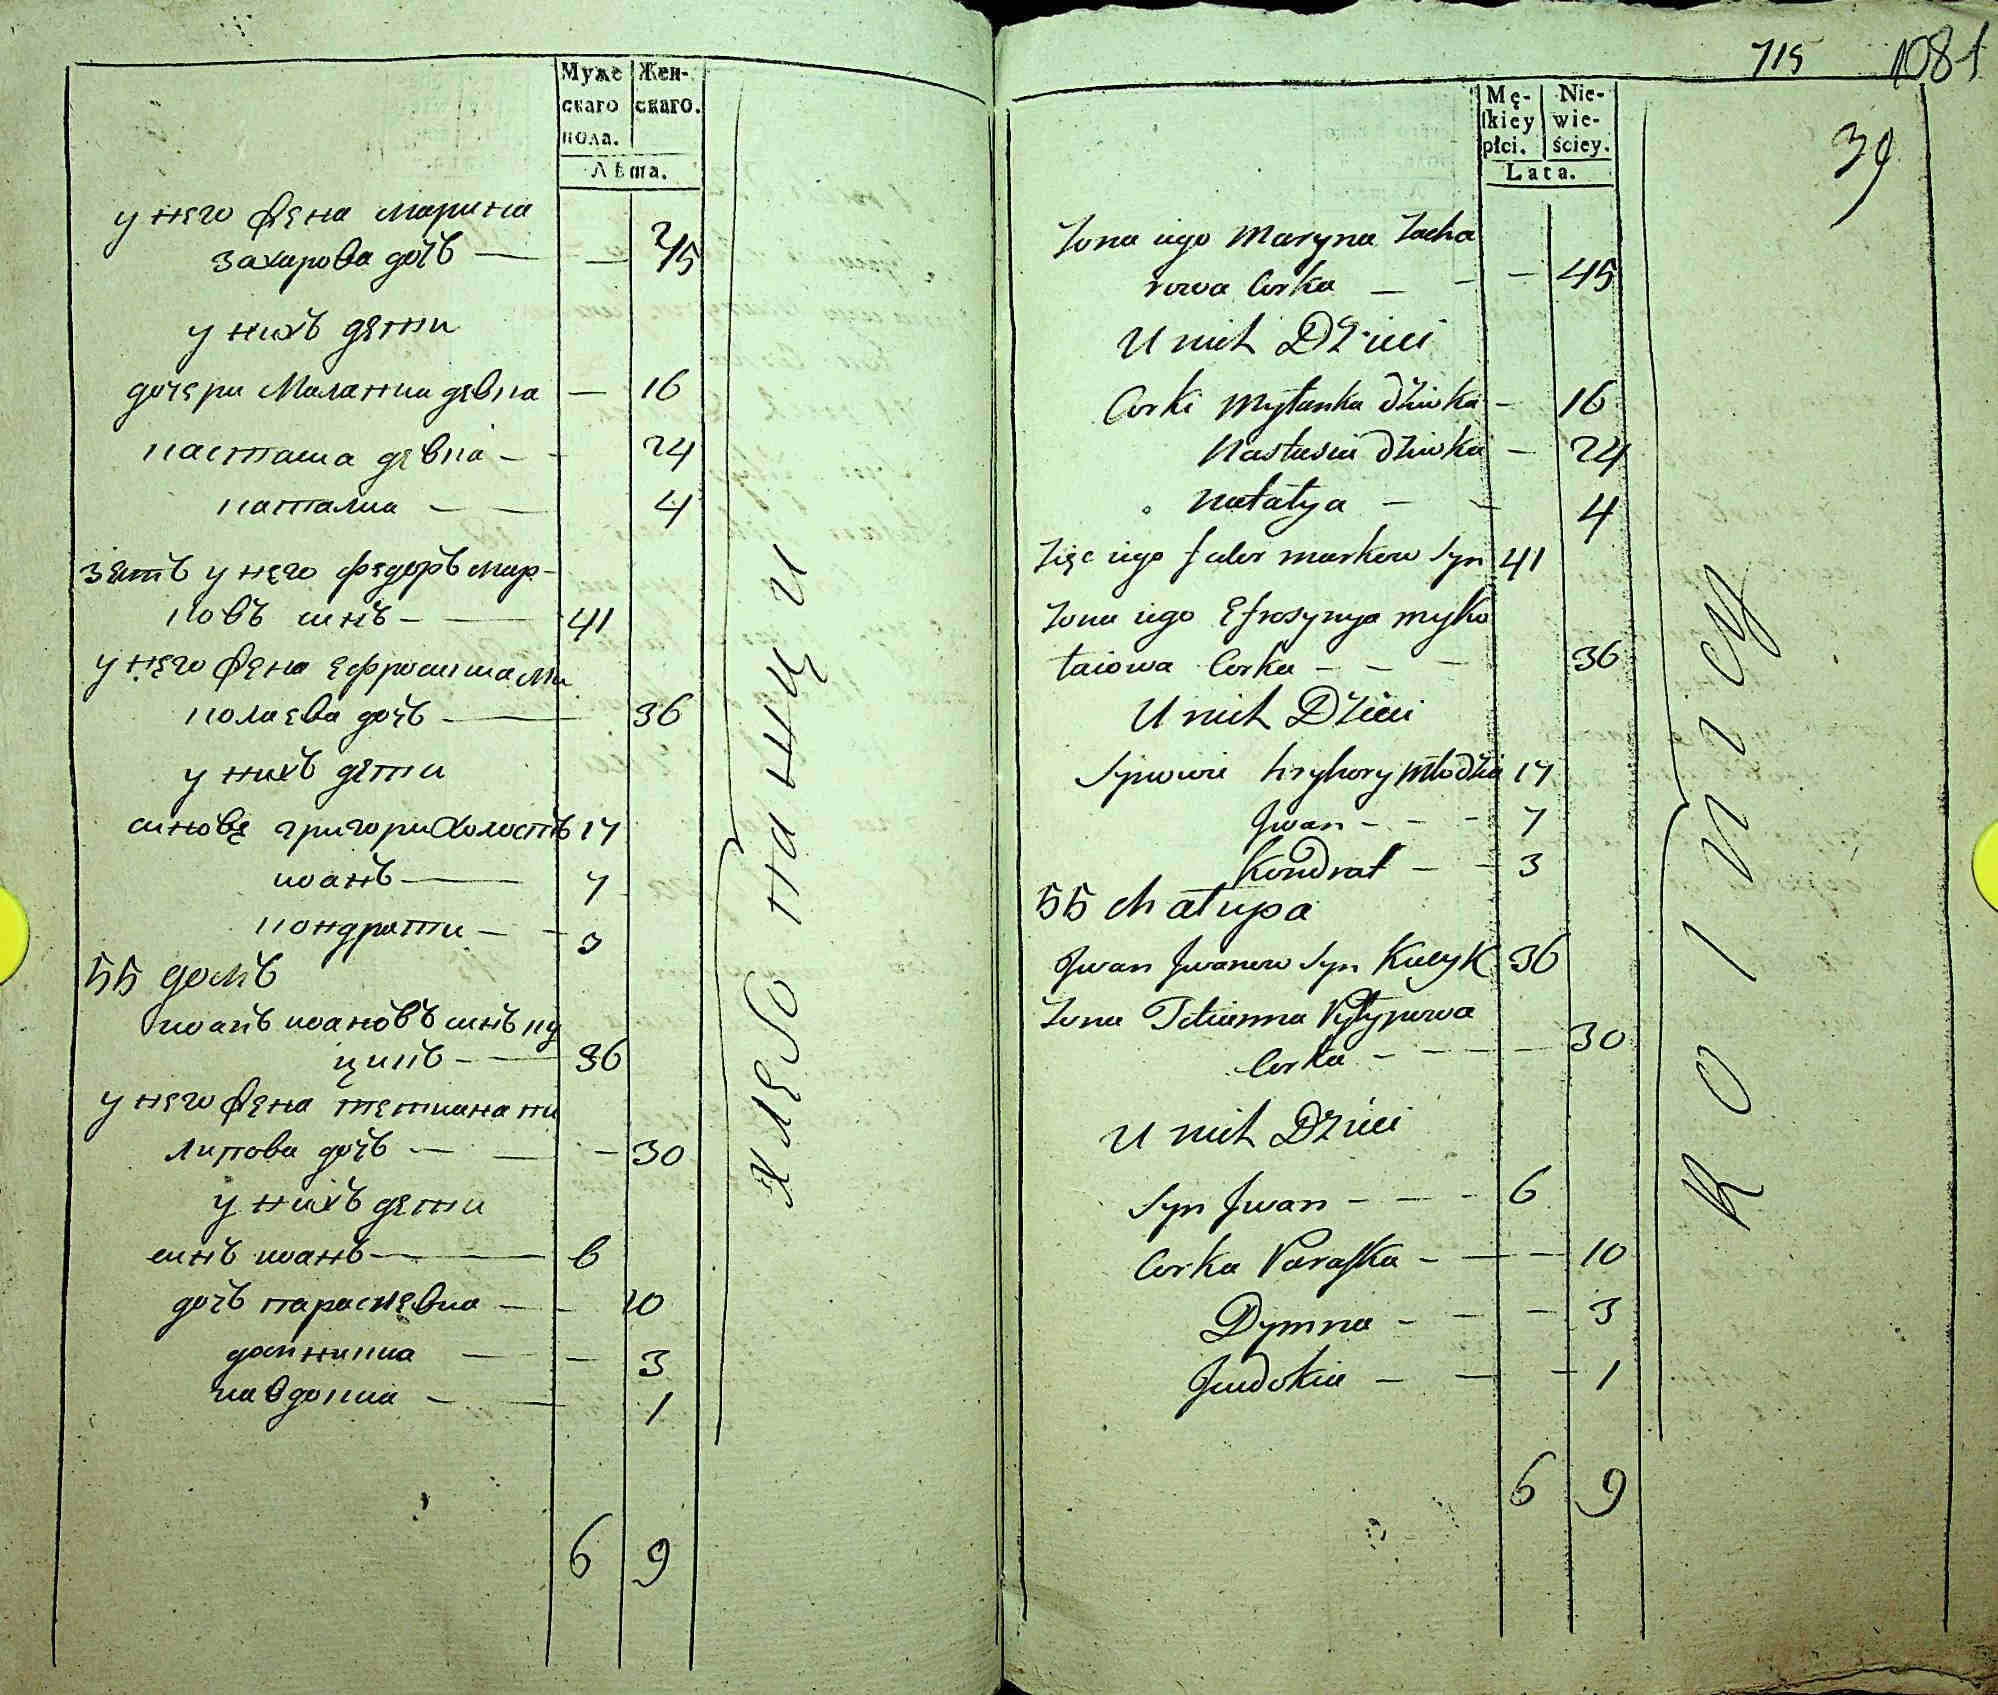 Муже
скаго
пола.
Жен-
скаго.
Лѣта.
у него жена марина
захарова дочъ — — 45
у нихъ дети
дочери Малания девка — 16
настася девка — - 24
наталия — — 4
зять у него федоръ мар-
ковъ синъ — — 41
у него жена ефросиния ми
колаева дочъ — 36
у нихъ дети
синове григори холостъ 17
иоанъ — 7
кондрати — - 3
55 домъ
иоанъ иоановъ синъ ку
цикъ — 36
у него жена тетиана пи
липова дочъ — — - 30
у нихъ дети
синъ иоанъ — 6
дочъ параскевиа — - 10
домникиа — — 3
иавдокиа — — 1
6 9
хлебо
пашци
715 1081
39
Mę-
skiey
płci.
Nie-
wie-
ściey.
Lata.
Zona iego Maryna Zacha
rowa Corka — - - 45
U nich Dzieci
Corki Myłanka Dziwka - 16
Nastusia Dziwka - 24
Natałya — - 4
Zięc iego Fedor markow Syn 41
Zona iego Efrosynya myko
łaiowa Corka - - - 36
U nich Dzieci
Synowie Hryhory Młodzia 17
Jwan - - - 7
Kondrat - - 3
55 chałupa
Jwan Jwanow Syn Kucyk 36
Zona Tetianna Pyłypowa
Corka - - - - 30
U nich Dzieci
Syn Jwan - - - 6
Corka Paraska - - - 10
Dymna - - - 3
Jewdokia - - - 1
6 9
Rolnicy